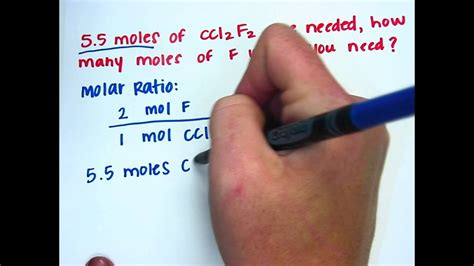 5.5 moles of CCl2F2 needed, how
many moles of F you need?
Molar Ratio:
2 mol F
1 mol CCl
5.5 moles C